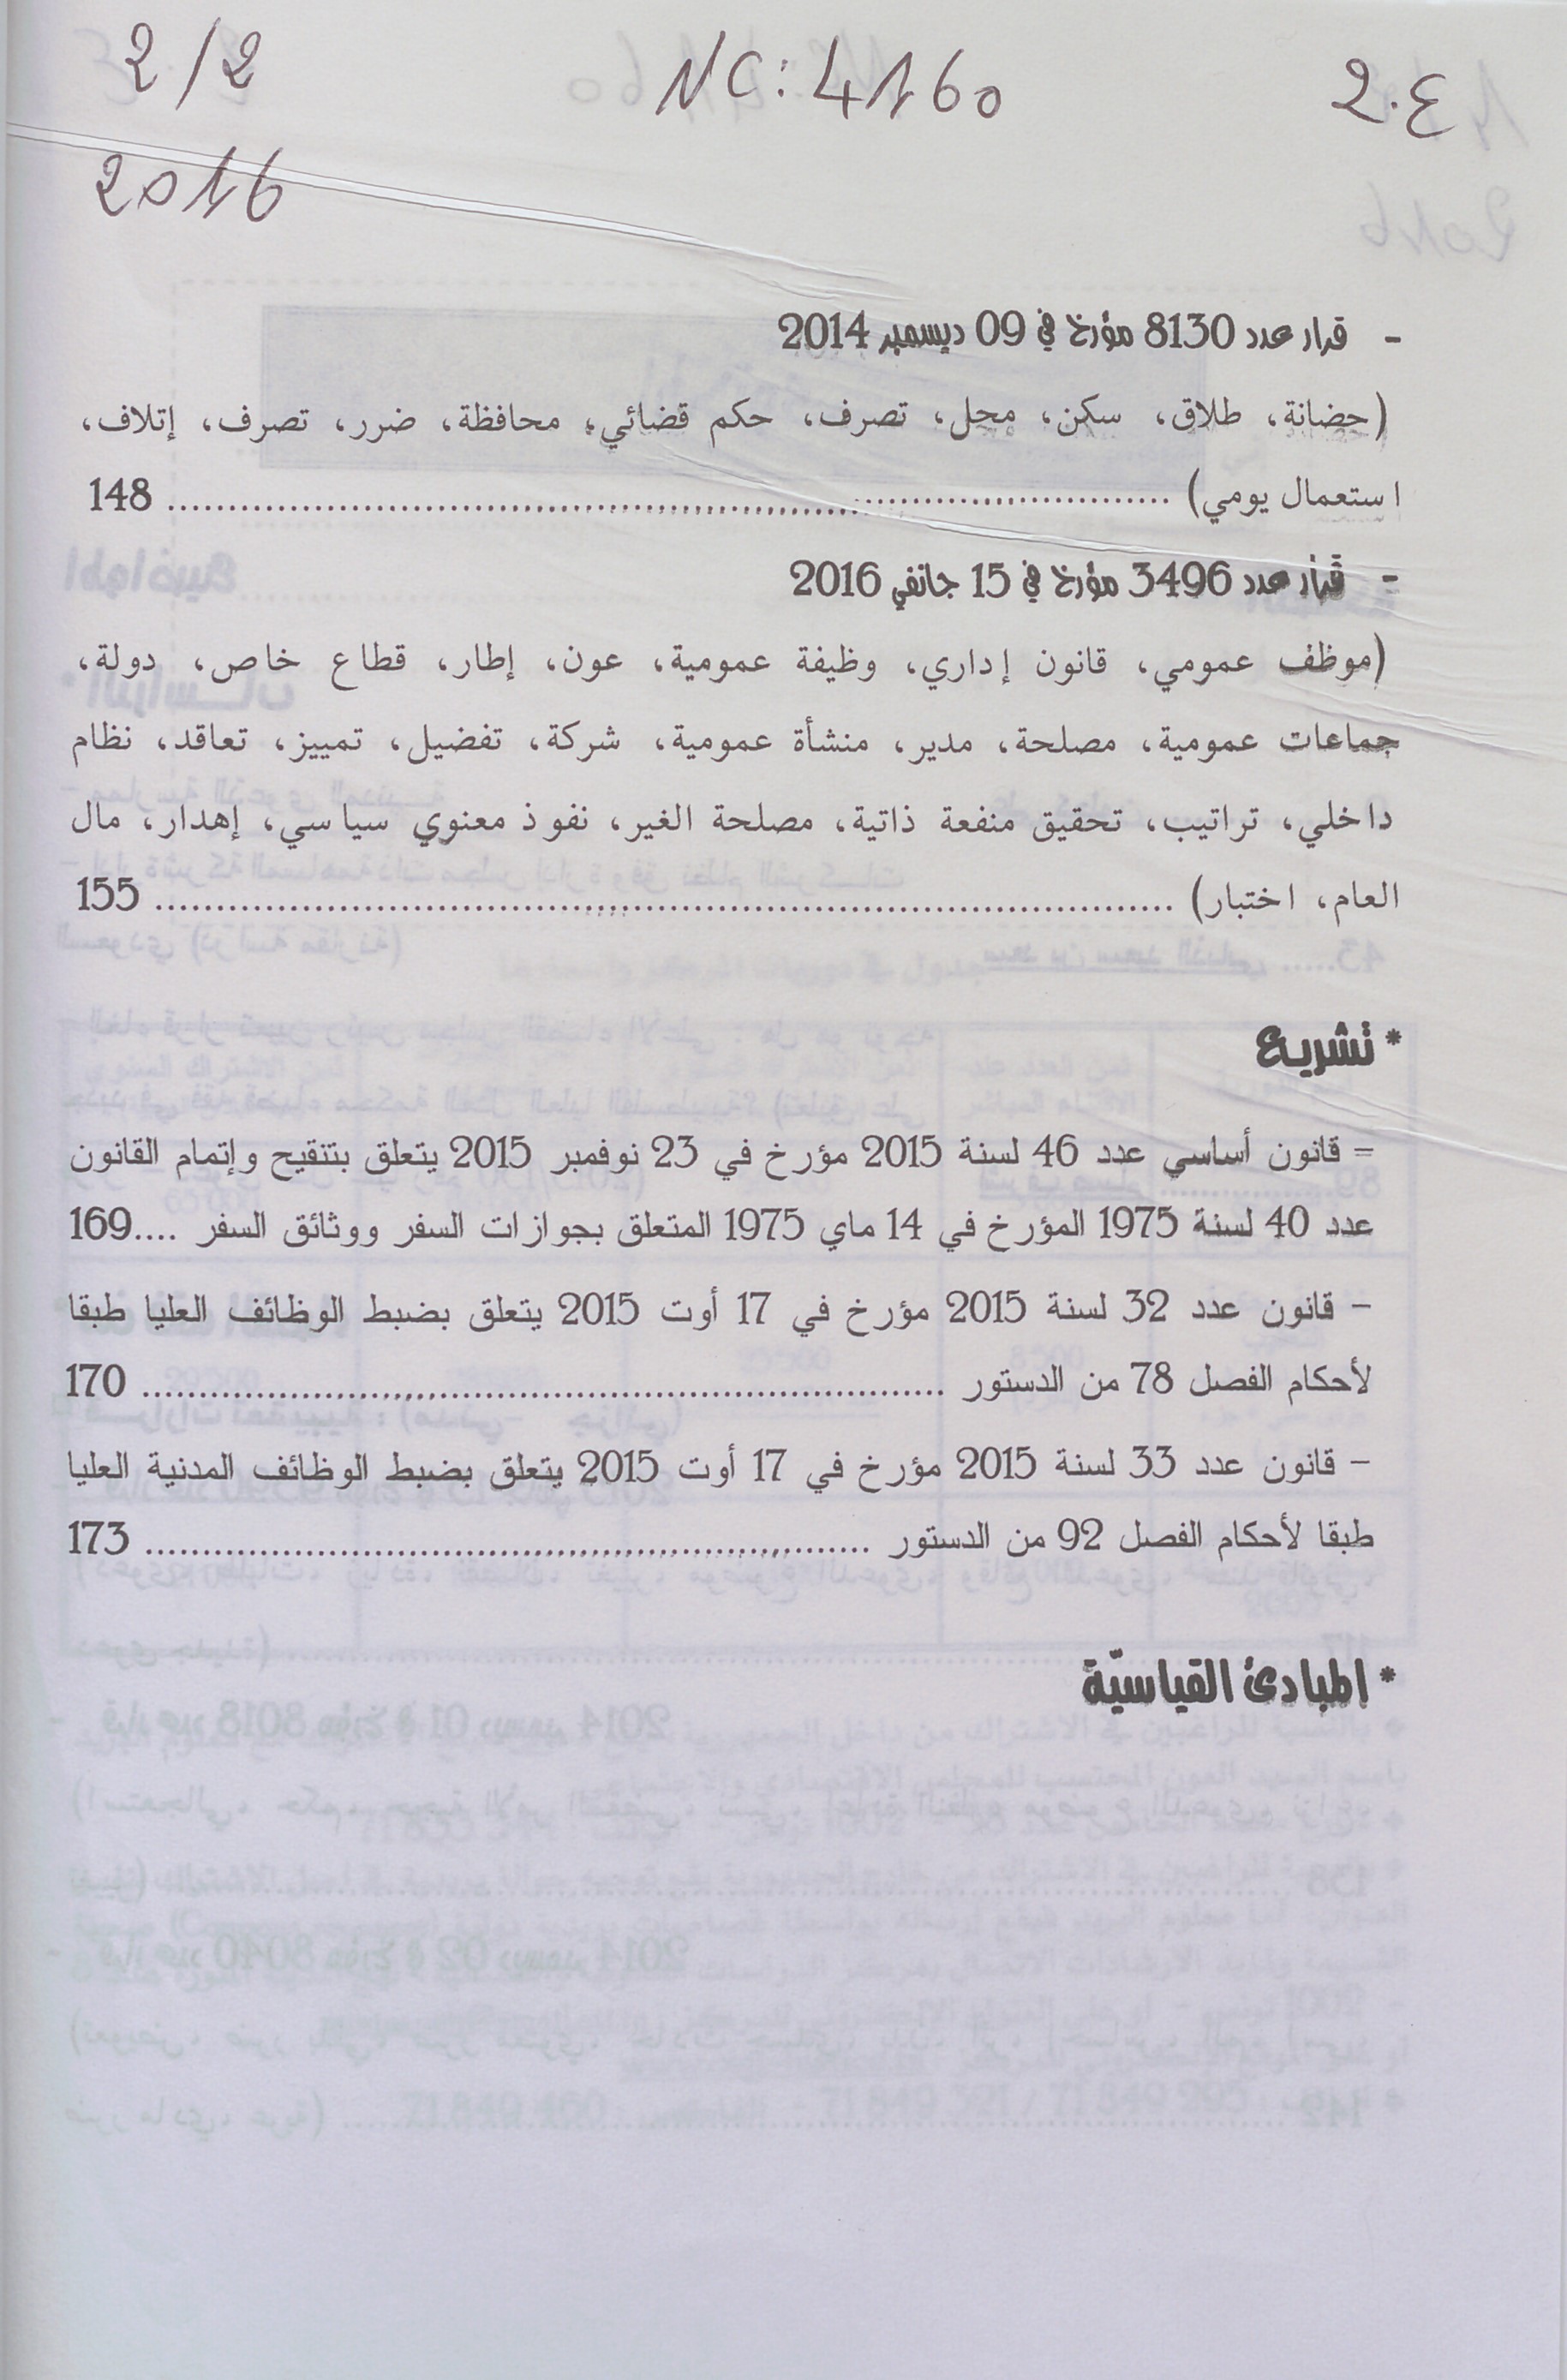 2/2
NC: 4160
2.ع
2016
- قرار عدد 8130 مؤرخ في 09 ديسمبر 2014
(حضانة، طلاق، سكن، محل، تصرف، حكم قضائي، محافظة، ضرر، تصرف، إتلاف،
استعمال يومي) ........................................................................ 148
- قرار عدد 3496 مؤرخ في 15 جانفي 2016
(موظف عمومي، قانون إداري، وظيفة عمومية، عون، إطار، قطاع خاص، دولة،
جماعات عمومية، مصلحة، مدير، منشأة عمومية، شركة، تفضيل، تمييز، تعاقد، نظام
داخلي، تراتيب، تحقيق منفعة ذاتية، مصلحة الغير، نفوذ معنوي سياسي، إهدار، مال
العام، اختبار) ........................................................................ 155
* تشريع
- قانون أساسي عدد 46 لسنة 2015 مؤرخ في 23 نوفمبر 2015 يتعلق بتنقيح وإتمام القانون
عدد 40 لسنة 1975 المؤرخ في 14 ماي 1975 المتعلق بجوازات السفر ووثائق السفر ....169
- قانون عدد 32 لسنة 2015 مؤرخ في 17 أوت 2015 يتعلق بضبط الوظائف العليا طبقا
لأحكام الفصل 78 من الدستور ............................................................ 170
- قانون عدد 33 لسنة 2015 مؤرخ في 17 أوت 2015 يتعلق بضبط الوظائف المدنية العليا
طبقا لأحكام الفصل 92 من الدستور ...................................................... 173
* المبادئ القياسيّة